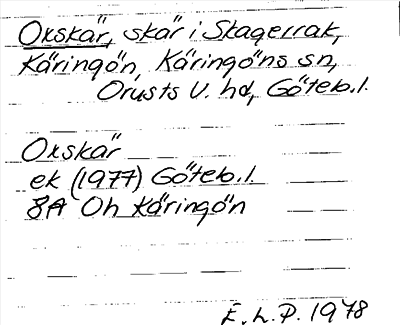 Oxskär, skär i Skagerrak,
Käringön, Käringöns sn,
Orusts V. hd, Göteb.l.
Oxskär
ek (1977) Göteb.l.
8A Oh Käringön
E.L.P. 1978